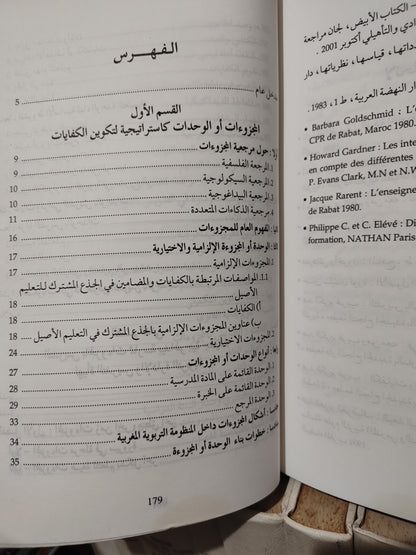 الفهرس
مدخل عام ........ 5
القسم الأول
المجزوءات أو الوحدات كاستراتيجية لتكوين الكفايات
أولا : حول مرجعية المجزوءات ........ 9
1. المرجعة الفلسفية ........ 9
2. المرجعية السيكولوجية ........ 10
3. المرجعية البيداغوجية ........ 10
4. مرجعية الذكاءات المتعددة ........ 11
ثانيا : المفهوم العام للمجزوءات ........ 16
ثالثا : الوحدة أو المجزوءة الإلزامية والاختيارية ........ 17
1. المجزوءات الإلزامية ........ 17
1.1. المواصفات المرتبطة بالكفايات والمضامين في الجذع المشترك للتعليم
الأصيل ........ 18
أ) الكفايات ........ 18
ب) عناوين المجزوءات الإلزامية بالجذع المشترك في التعليم الأصيل .. 18
2. المجزوءات الاختيارية ........ 24
رابعا : أنواع الوحدات أو المجزوءات
1. الوحدة القائمة على المادة المدرسية ........ 28
2. الوحدة القائمة على الخبرة ........ 29
3. الوحدة المرجع ........ 33
خامسا : أشكال المجزوءات داخل المنظومة التربوية المغربية ........ 34
سادسا : خطوات بناء الوحدة أو المجزوءة ........ 35
179
– الكتاب الأبيض، لجان مراجعة
دادي والتأهيلي أكتوبر 2001 .
داتها، قياسها، نظرياتها، دار
دار النهضة العربية، ط 1، 1983 .
• Barbara Goldschmid :
CPR de Rabat, Maroc 1980.
• Howard Gardner : Les inte
en compte des différentes
P. Evans Clark, M.N et N.W.
• Jacque Rarent : L'enseigne
de Rabat 1980.
• Philippe C. et C. Elévé : Di
formation, NATHAN Paris